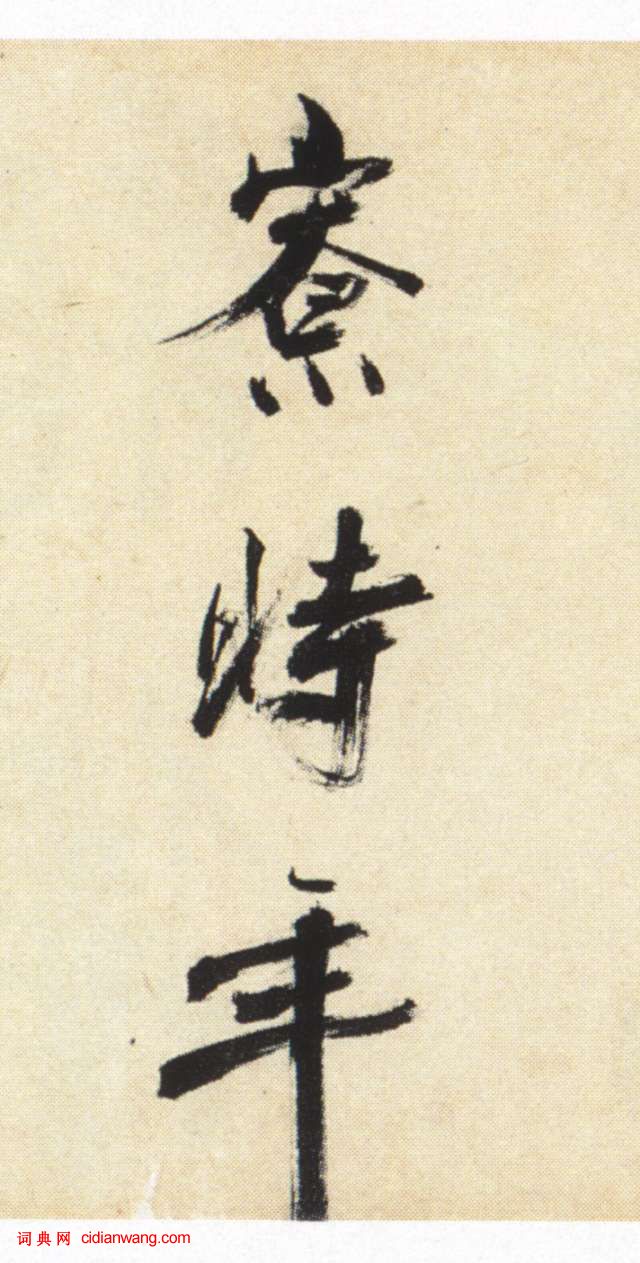 寮時年
词典网 cidianwang.com